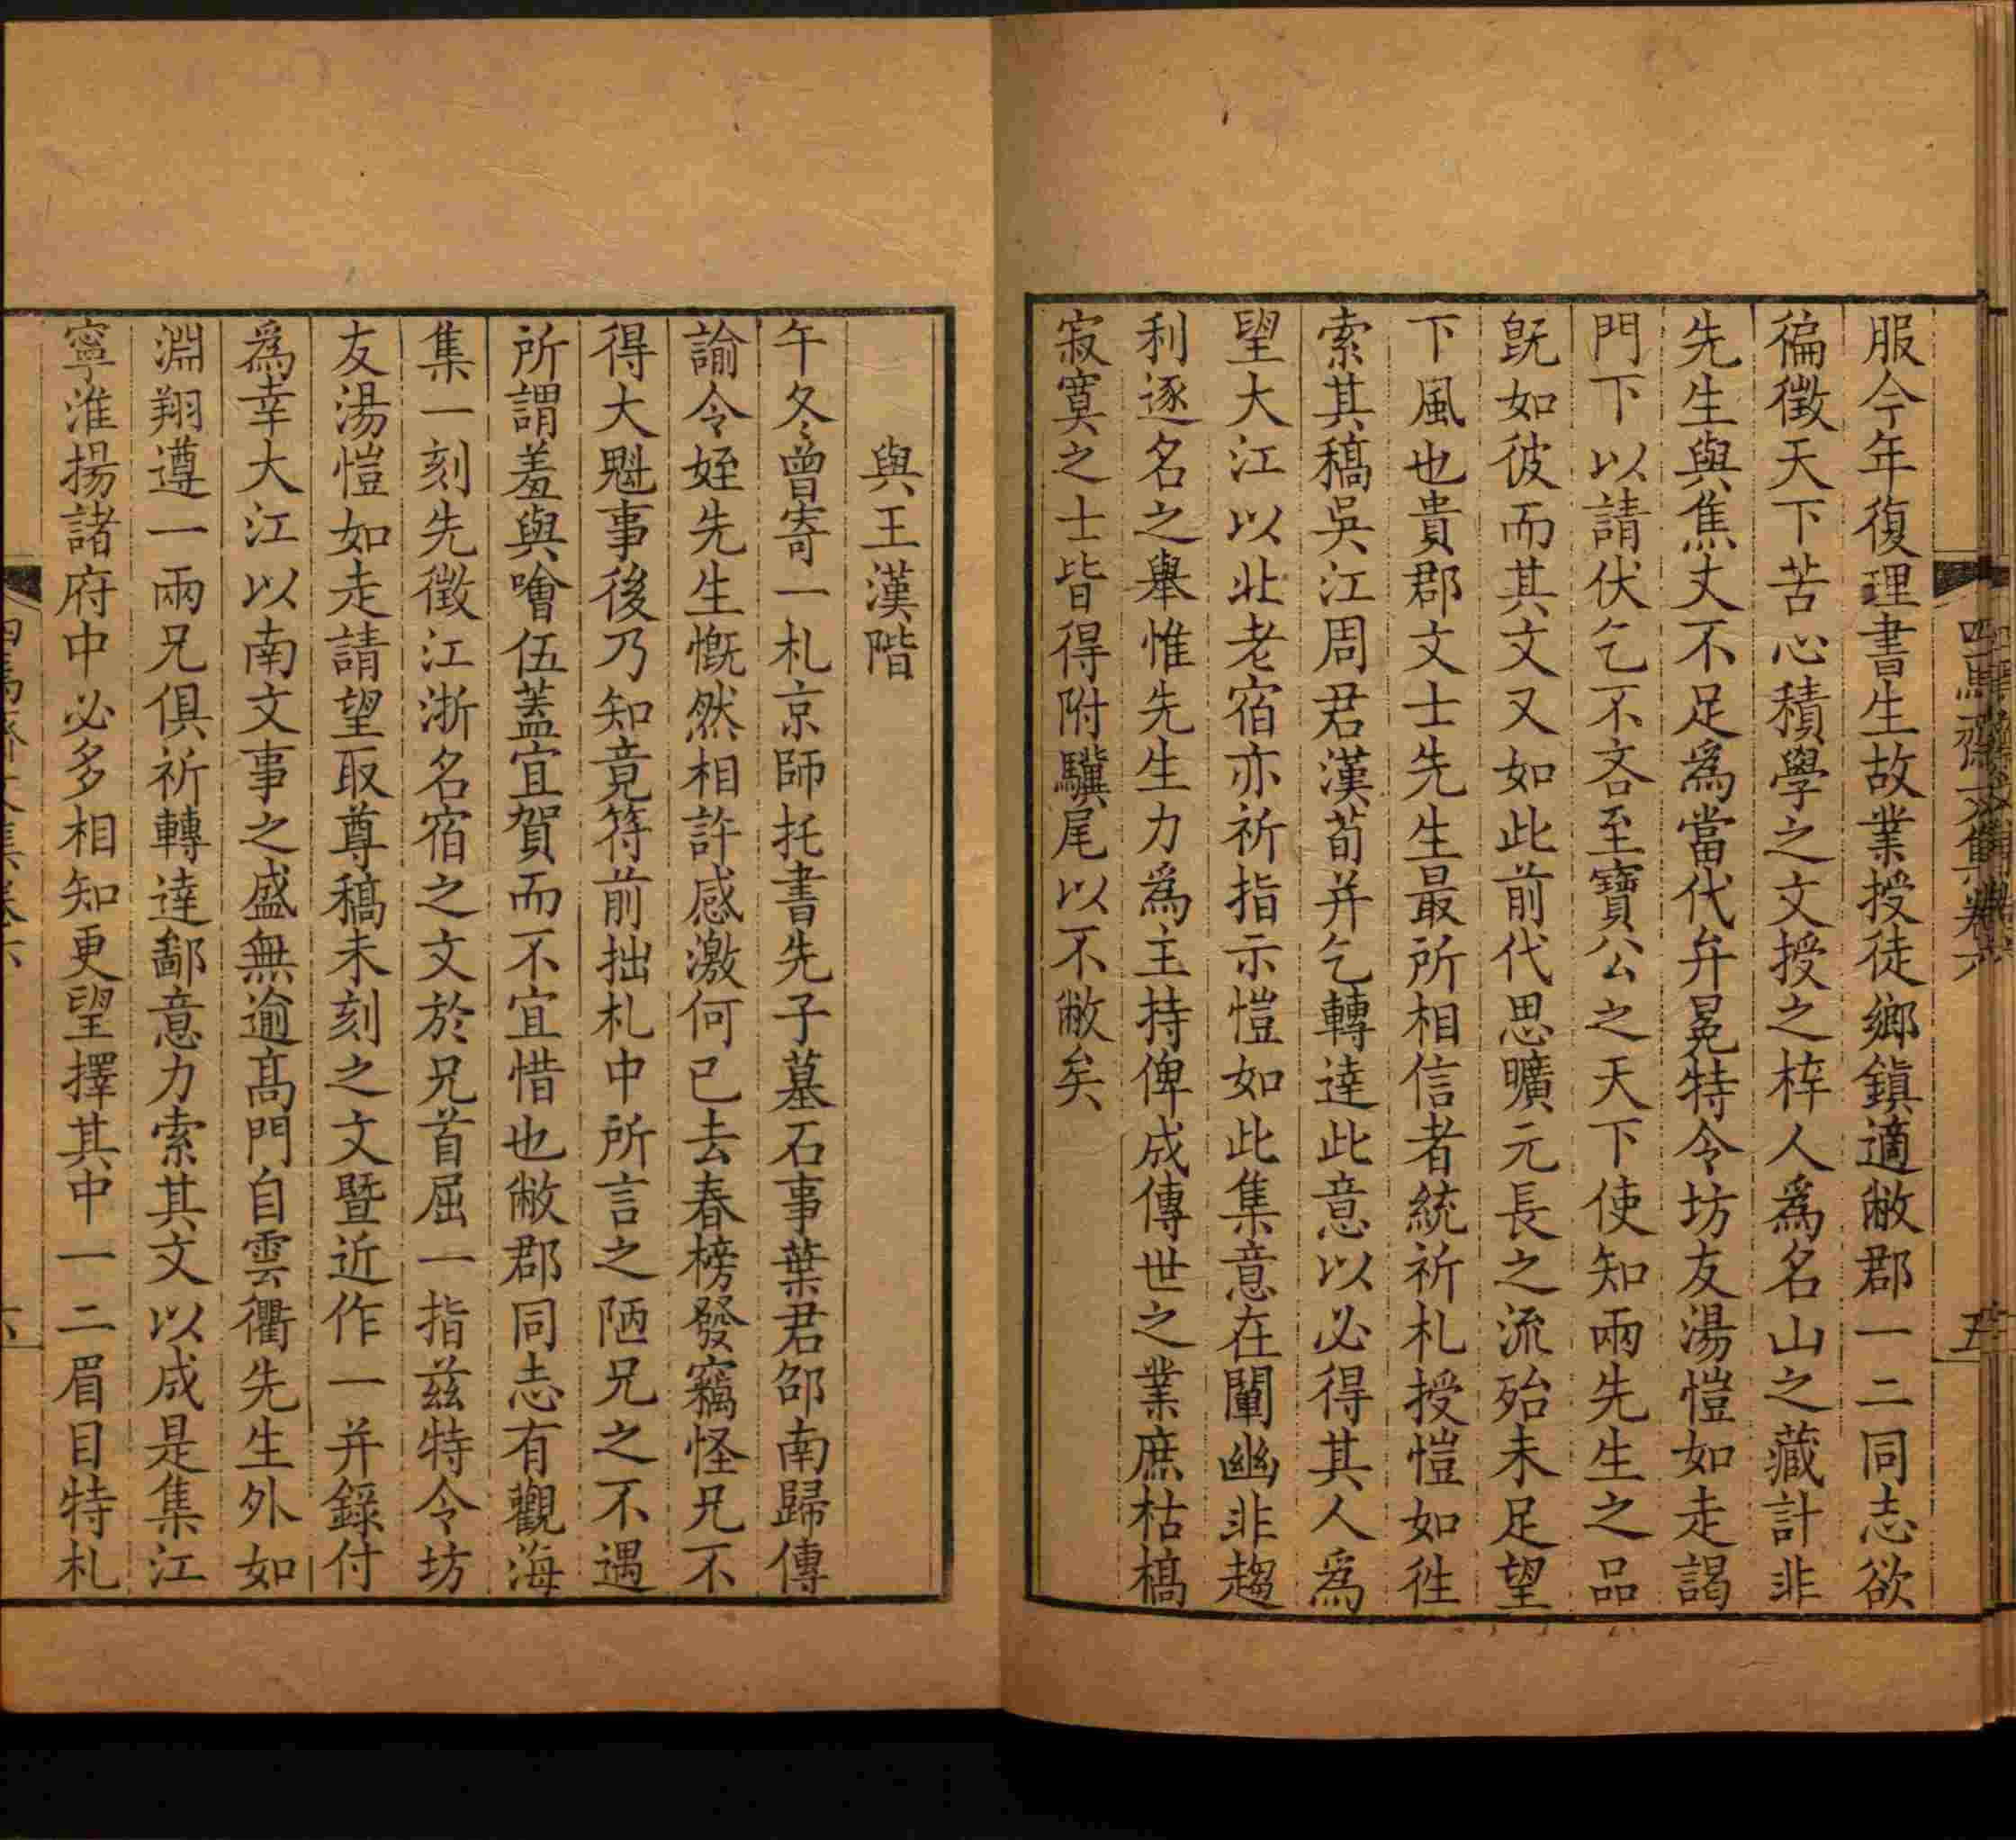 服今年復理書生故業授徒鄉鎮適敝郡一二同志欲
徧徵天下苦心積學之文授之梓人爲名山之藏計非
先生與焦丈不足爲當代弁冕特令坊友湯愷如走謁
門下以請伏乞不吝至寶公之天下使知兩先生之品
旣如彼而其文又如此前代思曠元長之流殆未足望
下風也貴郡文士先生最所相信者統祈札授愷如徃
索其稿吳江周君漢荀并乞轉達此意以必得其人爲
望大江以北老宿亦祈指示愷如此集意在闡幽非趨
利逐名之舉惟先生力爲主持俾成傳世之業庶枯槁
寂寞之士皆得附驥尾以不敝矣
與王漢階
午冬曾寄一札京師托書先子墓石事葉君卲南歸傳
諭令姪先生慨然相許感激何已去春榜發竊怪兄不
得大魁事後乃知竟符前拙札中所言之陋兄之不遇
所謂羞與噲伍蓋宜賀而不宜惜也敝郡同志有觀海
集一刻先徵江浙名宿之文於兄首屈一指茲特令坊
友湯愷如走請望取尊稿未刻之文暨近作一并錄付
爲幸大江以南文事之盛無逾高門自雲衢先生外如
淵翔遵一兩兄俱祈轉達鄙意力索其文以成是集江
寧淮揚諸府中必多相知更望擇其中一二眉目特札